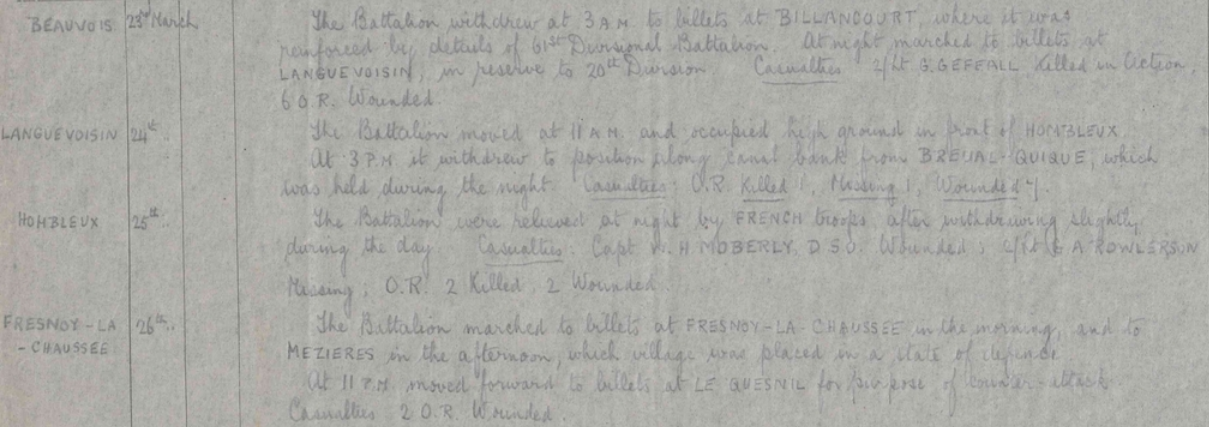 BEAUVOIS 23rd March The Battalion withdrew at 3 AM to billets at BILLANCOURT, where it was
reinforced by details of 61st Divisional Battalion. At night marched to billets at
LANGUEVOISIN, in reserve to 20th Division. Casualties 2/Lt G. GEFFALL Killed in Action,
6 O.R. Wounded.
LANGUEVOISIN 24th .. The Battalion moved at 11 AM. and occupied high ground in front of HOMBLEUX
At 3 P.M it withdrew to position along canal bank from BREUAL-QUIQUE, which
was held during the night. Casualties; O.R. Killed 1, Missing 1, Wounded 7.
HOMBLEUX 25th .. The Battalion were relieved at night by FRENCH troops after withdrawing slightly
during the day. Casualties: Capt H. MOBERLY. D.S.O. Wounded; 2/Lt A ROWLERSON
Missing; O.R. 2 Killed, 2 Wounded.
FRESNOY-LA 26th .. The Battalion marched to billets at FRESNOY-LA-CHAUSSEE in the morning, and to
-CHAUSSEE MEZIERES in the afternoon, which village was placed in a state of defence
At 11 P.M. moved forward to billets at LE QUESNIL for purpose of counter-attack.
Casualties 2 O.R. Wounded.